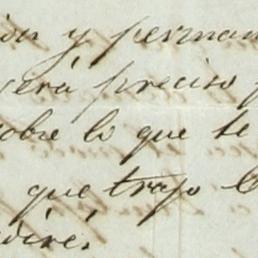 y perman
será preciso
sobre lo que te
que trajo
diré.